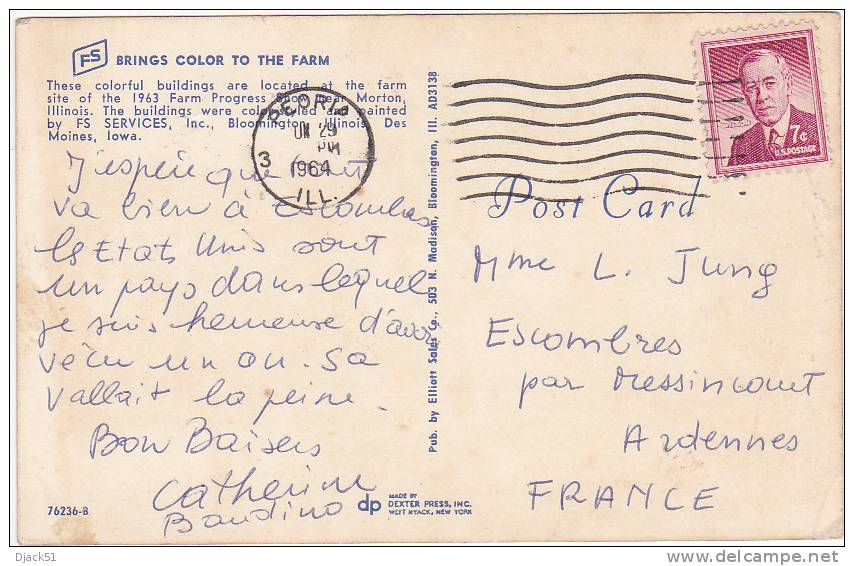 FS BRINGS COLOR TO THE FARM
These colorful buildings are located at the farm
site of the 1963 Farm Progress Show near Morton,
Illinois. The buildings were color styled and painted
by FS SERVICES, Inc., Bloomington, Illinois, Des
Moines, Iowa.
J'espère que tout
va bien à Escombres
les Etats Unis sont
un pays dans lequel
je suis heureuse d'avoir
vécu un an. Sa
vallait la peine.
Bon Baisers
Catherine
Baudino
76236-B
dp MADE BY
DEXTER PRESS, INC.
WEST NYACK, NEW YORK
Pub. by Elliott Sales Co., 503 N. Madison, Bloomington, Ill. AD3138
PEORIA
29
PM
3
1964
ILL.
WILSON
7¢
U.S. POSTAGE
Post Card
Mme L. Jung
Escombres
par Messincourt
Ardennes
FRANCE
Djack51
delcampe.net